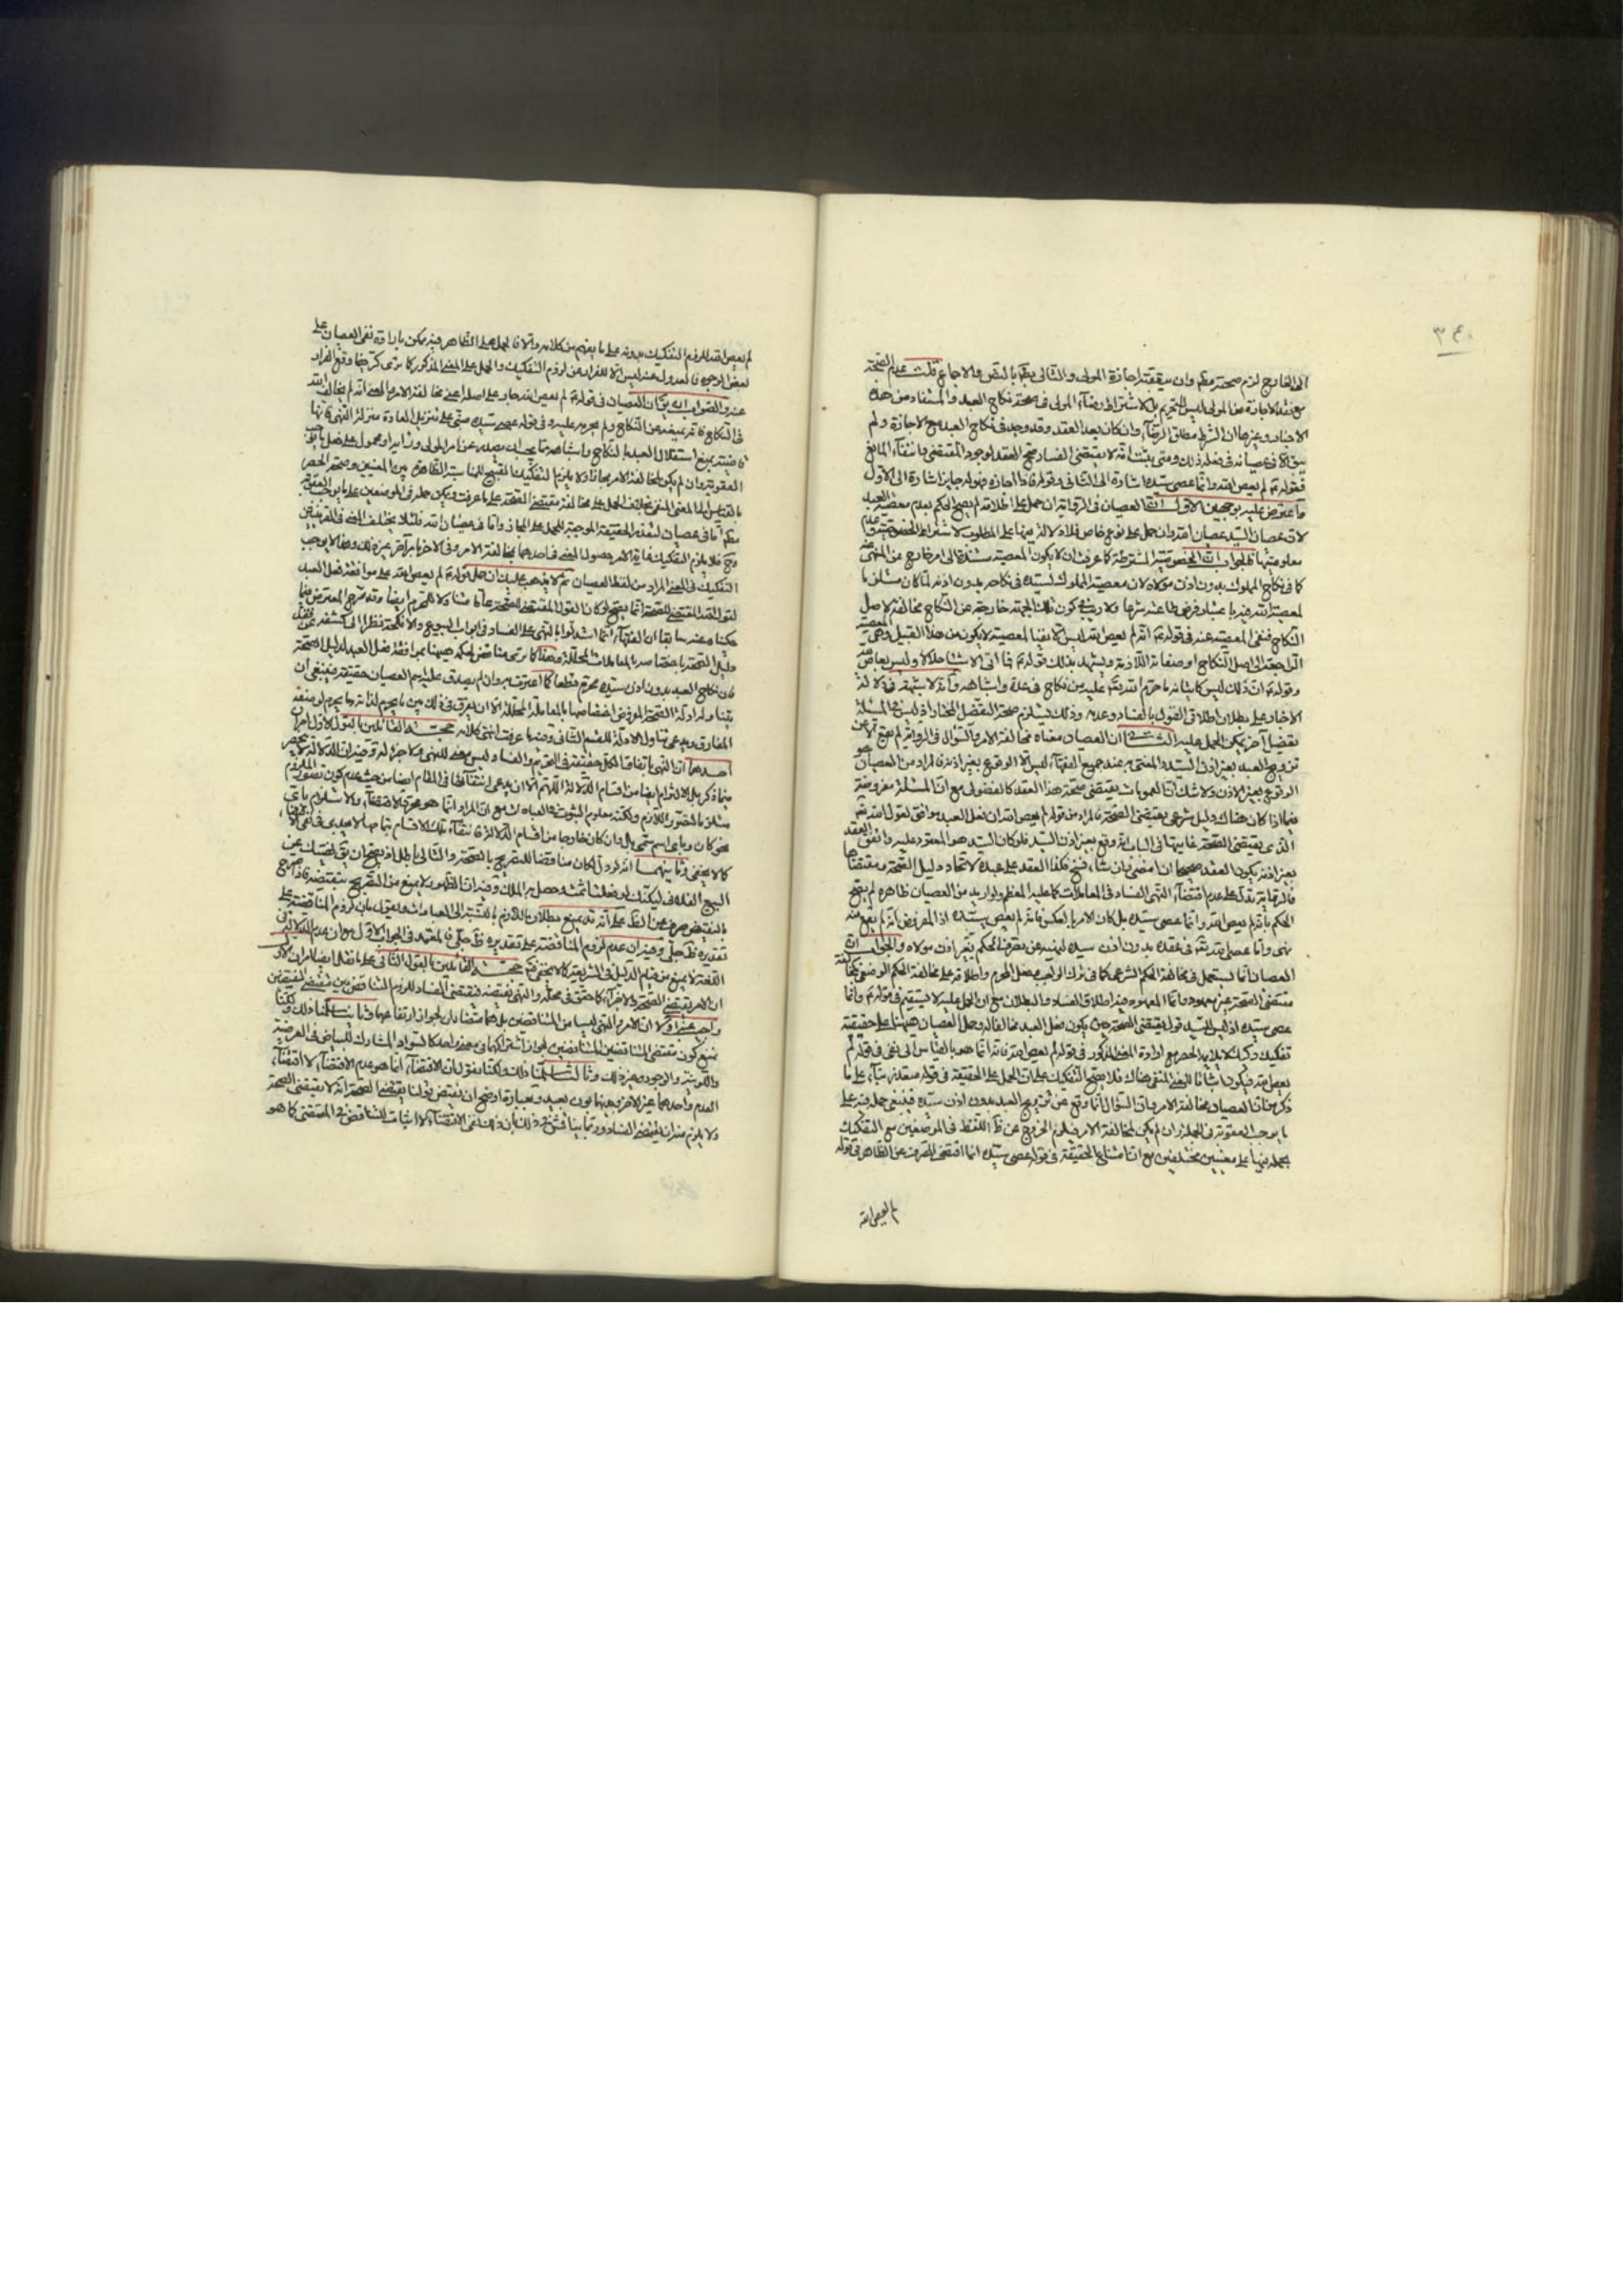 ٣٤٠
الى الخارج لزم صحته مطم وان سبقته اجازة المولى والتالى بقم بالنص والاجماع قلت عدم الصحة
مع فقد الاجازة من المولى ليس للتحريم بل لاشتراط رضاء المولى فى صحة نكاح العبد والمستفاد من هذه
الاخبار وغيرها ان الشرط مطلق الرضا وان كان بعد العقد وقد وجد فى نكاح العبد مع الاجازة ولم
يبق الا عصيانه فى فعله ذلك ومتى يثبت انه لا يقتضى الفساد صح العقد لوجود المقتضى وانتفاء المانع
فقوله ع لم يعص الله وانما عصى سيده اشارة الى الثانى وقوله فاذا اجازه فهو له جايز اشارة الى الاول
واعترض عليه بوجهين الاول ان العصيان فى الرواية ان حمل على اطلاقه لم يصح الحكم بعدم معصية العبد
لان عصيان السيد عصيان الله وان حمل على نوع خاص فلا دلالة فيها على المطلوب لاشتراط الخصوصية وعدم
معلوميتها فالجواب ان الخصوصية المشترطة كما عرفت ان لا يكون المعصية مستندة الى امر خارج عن المنهى عنه
كما فى نكاح المملوك بدون اذن مولاه لان معصية المملوك لسيده فى نكاحه بدون اذنه لما كان مستلزما
لمعصية الله
النكاح فنفى المعصية عنه فى قوله ع انه لم يعص الله ليس الا نفيا لمعصية لا يكون من هذا القبيل وهى المعصية
الراجعة الى اصل النكاح او صفاته اللازمة ويشهد بذلك قوله ع انما اتى شيئا حلالا وليس بعاص لله
وقوله ع ان ذلك ليس كاتيانه ما حرم الله تعالى عليه من نكاح فى عدة واشباهه
الاخبار على بطلان اطلاق القول بالفساد وعدمه وذلك يستلزم صحة التفصيل المختار اذ ليس فى المسئلة
تفصيل آخر يمكن الحمل عليه الثانى ان العصيان معناه مخالفة الامر والسؤال فى الرواية لم يقع الا عن
تزويج العبد بغير اذن السيد والمعنى به عند جميع الفقهاء ليس الا الوقوع بغير اذنه فالمراد من العصيان هو
الوقوع بغير الاذن ولا شك ان العمومات يقتضى صحة هذا العقد كالفضولى مع ان المسئلة مفروضة
فيما اذا كان هناك دليل شرعى يقتضى الصحة فالمراد من قوله لم يعص الله ان فعل العبد موافق لقول الله تعالى
الذى يقتضى الصحة غايتها فى الباب انه وقع بغير اذن السيد فلو كان السيد هو المعقود عليه واتفق العقد
بغير اذنه يكون العقد صحيحا ان امضى فان شاء فسخ فكذا العقد على عبده لاتحاد دليل الصحة ومقتضاها
فالرواية تدل على عدم اقتضاء النهى الفساد فى المعاملات كما عليه المعظم ولو اريد من العصيان ظاهره لم يصح
الحكم بانه لم يعص الله وانما عصى سيده بل كان الامر بالعكس فانه لم يعص سيده اذ المفروض انه لم يقع منه
نهى وانما عصى الله تعالى فى عقده بدون اذن سيده لنهيه عن تصرفه بغير اذن مولاه والجواب ان
العصيان انما يستعمل فى مخالفة الحكم الشرعى كما فى ترك الواجب وفعل المحرم واطلاقه على مخالفة الحكم الوضعى كمخالفة
مقتضى الصحة غير معهود وانما المعهود فيه اطلاق الفساد والبطلان مع ان الحمل عليه لا يستقيم فى قوله ع وانما
عصى سيده اذ ليس للسيد قول يقتضى الصحة حتى يكون فعل العبد مخالفا له وحمل العصيان هيهنا على حقيقته
تفكيك ركيك لا يلايمه الحصر مع ارادة المعنى المذكور فى قوله لم يعص الله فانه انما هو بالقياس الى نفى فى قوله لم
يعص الله فيكون اثباتا للمعنى المنفى هناك فلا يصح التفكيك على ان الحمل على الحقيقة فى قوله متعذر بناء على ما
ذكر من ان العصيان مخالفة الامر وان السؤال انما وقع عن تزويج العبد بدون اذن سيده فينبغى حمله فيه على
ما يوجب العقوبة فى الجملة وان لم يكن مخالفة الامر فيلزم الخروج عن ظاهر اللفظ فى الموضعين مع التفكيك
بحمله فيهما على معنيين مختلفين مع ان امتناع الحقيقة فى قوله عصى سيده انما اقتضى الصرف عن الظاهر فى قوله
لم يعص الله
لم يعص الله للزوم التفكيك بدونه على ما يفهم من كلامه والا فالحمل على الظاهر فيه ممكن بارادة نفى العصيان على
بعض الوجوه فالعدول عنه ليس الا للفرار عن لزوم التفكيك والحمل على المعنى المذكور كما ترى كر فيما وقع الفرار
عنه والصواب ان يقال ان العصيان فى قوله ع لم يعص الله جار على اصله اعنى مخالفة الامر والمعنى انه لم يخالف الله
فى النكاح فانه تعالى لم يمنعه عن النكاح ولم يحرمه عليه وفى قوله عصى سيده مبنى على تنزيل العادة منزلة النهى فانها
العقوبة وان لم يكن مخالفة الامر مجازا ولا يلزم التفكيك القبيح للمناسبة الظاهرة بين المعنيين وصحة الحصر
بالقياس الى المعنى المنفى بخلاف الحمل على مخالفة مقتضى الصحة على ما عرفت ويمكن حمله فى الموضعين على ما يوجب العقوبة
مطم اما فى عصيان السيد فلتعذر الحقيقة الموجب للحمل على المجاز واما فى عصيان الله فلئلا يختلف المعنى فى القرينتين
وح فلا يلزم التفكيك غاية الامر حصول المعنى فى احدهما بمخالفة الامر وفى الاخر بامر آخر غير ذلك وهذا لا يوجب
التفكيك فى المعنى المراد من لفظ العصيان ثم لا يذهب عليك ان حمل قوله ع لم يعص الله على موافقة فعل العبد
لقول الله المقتضى للصحة انما يصح لو كان القول المقتضى للصحة عاما متناولا للمحرم ايضا وقد صرح المعترض فيما
حكينا عنه سابقا ان الفقهاء انما استدلوا بالنهى على الفساد فى ابواب البيوع والانكحة نظرا الى كشفه عن
دليل الصحة باختصاصه بالمعاملات المحللة وهذا كما ترى مناقض لحكمه هيهنا بموافقة فعل العبد لدليل الصحة
فان نكاح العبد بدون اذن سيده محرم قطعا كما اعترف به وان لم يصدق عليه اسم العصيان حقيقة فينبغى ان لا
يتناوله ادلة الصحة المفروض اختصاصها بالمعاملة المحللة الا ان يفرق فى ذلك بين ما يحرم لذاته وما يحرم لوصفه
المفارق ويدعى تناول الادلة للقسم الثانى وفيه ما عرفت انتهى كلامه حجة القائلين بالقول الاول امران
احدهما ان النهى باتفاق الكل حقيقة فى التحريم والفساد ليس معنى للنهى ولا جزئه وفيه ان الدلالة لا ينحصر
فيما ذكر بل الالتزام ايضا من اقسام الدلالة اللهم الا ان يدعى انتفائها فى المقام ايضا من حيث عدم كون تصور الملزوم
مستلزما لتصور اللازم ولكنه معلوم الثبوت فى العبادات مع ان المراد انما هو مجرد الاقتضاء والاستلزام باى
نحو كان وباى اسم سمى بل وان كان خارجا من اقسام الدلالة فانتفاء تلك الاقسام بتمامها لا يجدى فى نفى الاقتضاء
كما لا يخفى وثانيهما انه لو دل لكان مناقضا للتصريح بالصحة والتالى باطل اذ يصح ان يقال نهيتك عن
البيع الفلانى لكنك لو فعلت الثمن حصل به الملك وفيه ان الظهور لا يمنع من التصريح بنقيضه
بالنقيض صرف عن الظاهر على انه قد يمنع بطلان اللازم بالنسبة الى العبادات ويقول بان لزوم المناقضة على
تقديره ظاهر جلى وفيه ان عدم لزوم المناقضة على تقديره ظاهر جلى فالمعتمد فى الجواب الاول هو ان عدم الدلالة فى
اللغة لا يمنع من قيام الدليل فى الشريعة كما لا يخفى ثم حجة القائلين بالقول الثانى على ما نقل ايضا امران الاول
ان الامر يقتضى الصحة والاجزاء كما حقق فى محله والنهى نقيضه فيقتضى الفساد للزوم التناقض بين مقتضى النقيضين
واجيب عنه اولا ان الامر والنهى ليسا من المتناقضين بل هما متضادان لجواز ارتفاعهما وثانيا سلمنا ذلك ولكنا
نمنع كون مقتضى المتناقضين المتناقضين لجواز اشتراكهما فى معنى واحد كالسواد المشارك للبياض فى العرضية
واللونية والوجود وغير ذلك وثالثا سلمنا ذلك ولكنا نقول ان الاقتضاء انما هو عدم الاقتضاء لا اقتضاء
العدم واحدهما غير الاخر وبينهما بون بعيد وبعبارة اوضح ان نقيض قولنا يقتضى الصحة انه لا يقتضى الصحة
ولا يلزم منه ان يقتضى الفساد